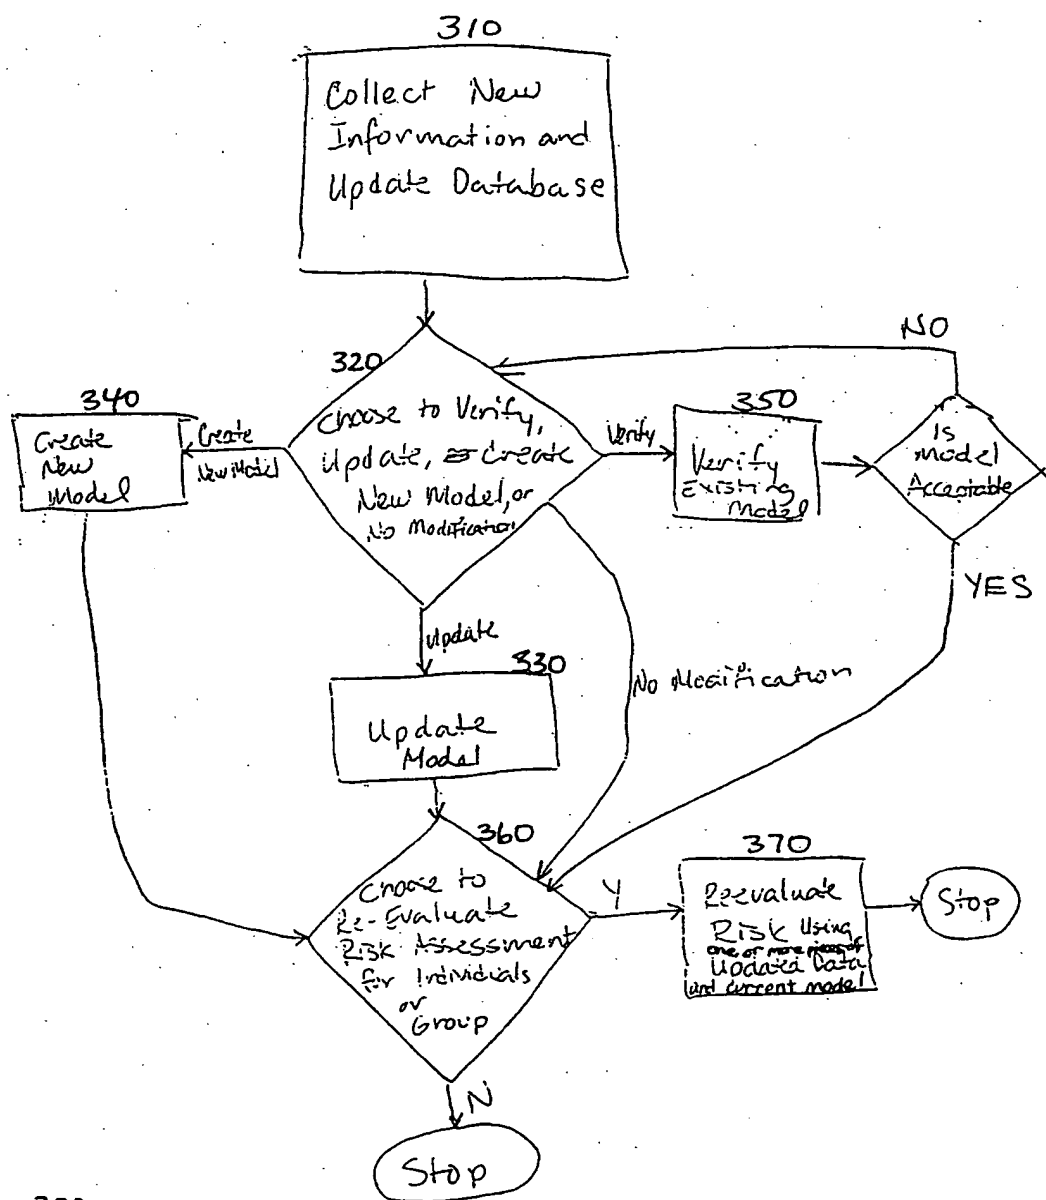 310
Collect New
Information and
Update Database
NO
320
Choose to Verify,
Update, or Create
New Model, or
No Modification
340
Create
New
Model
Create
New Model
Verify
350
Verify
Existing
Model
Is
Model
Acceptable
YES
Update
330
Update
Model
No Modification
360
Choose to
Re-Evaluate
Risk Assessment
for Individuals
or
Group
Y
370
Reevaluate
Risk Using
one or more pieces of
Updated Data
and current model
Stop
N
Stop